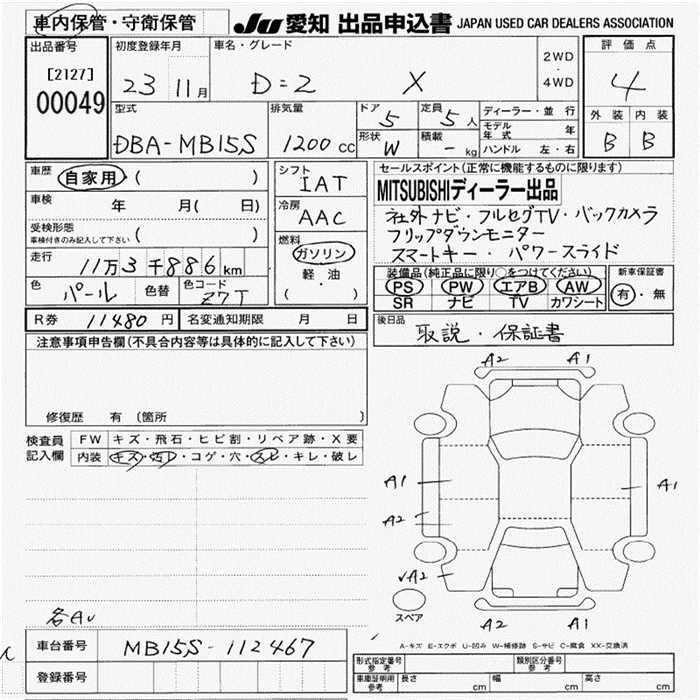 車内保管・守衛保管
JU 愛知 出品申込書 JAPAN USED CAR DEALERS ASSOCIATION
出品番号
[2127]
00049
初度登録年月
23 11月
車名・グレード
D=2 X
2WD
・
4WD
評価点
4
外装 内装
B B
型式
DBA-MB15S
排気量
1200 cc
ドア
5
形状
W
定員
5人
積載
- kg
ディーラー・並行
モデル年式 年
ハンドル 左・右
車歴
自家用 ( )
車検 年 月( 日)
受検形態
車検付きのみ記入して下さい ( )
走行 11万3千886km
色 パール 色替 色コード Z7T
シフト
IAT
冷房
AAC
燃料
ガソリン
軽・油
( )
セールスポイント(正常に機能するものに限ります)
MITSUBISHIディーラー出品
社外ナビ・フルセグTV・バックカメラ
フリップダウンモニター
スマートキー・パワースライド
装備品(純正品に限り○をつけてください)
PS PW エアB AW
SR ナビ TV カワシート
新車保証書
有・無
R券 11480円 名変通知期限 月 日
後日品
取説・保証書
注意事項申告欄(不具合内容等は具体的に記入して下さい)
修復歴 有 (箇所 )
検査員
記入欄
FW キズ・飛石・ヒビ割・リペア跡・X要
内装 キズ・汚レ・コゲ・穴・スレ・キレ・破レ
A2 A1
A1 A1
A2
A2
スペア
A2 A1
各AU
A-キズ E-エクボ U-凹み W-補修跡 S-サビ C-腐食 XX-交換済
車台番号 MB15S-112467
登録番号
形式指定番号
参考
類別区分番号
参考
車庫証明用
参考
長さ cm 幅 cm 高さ cm